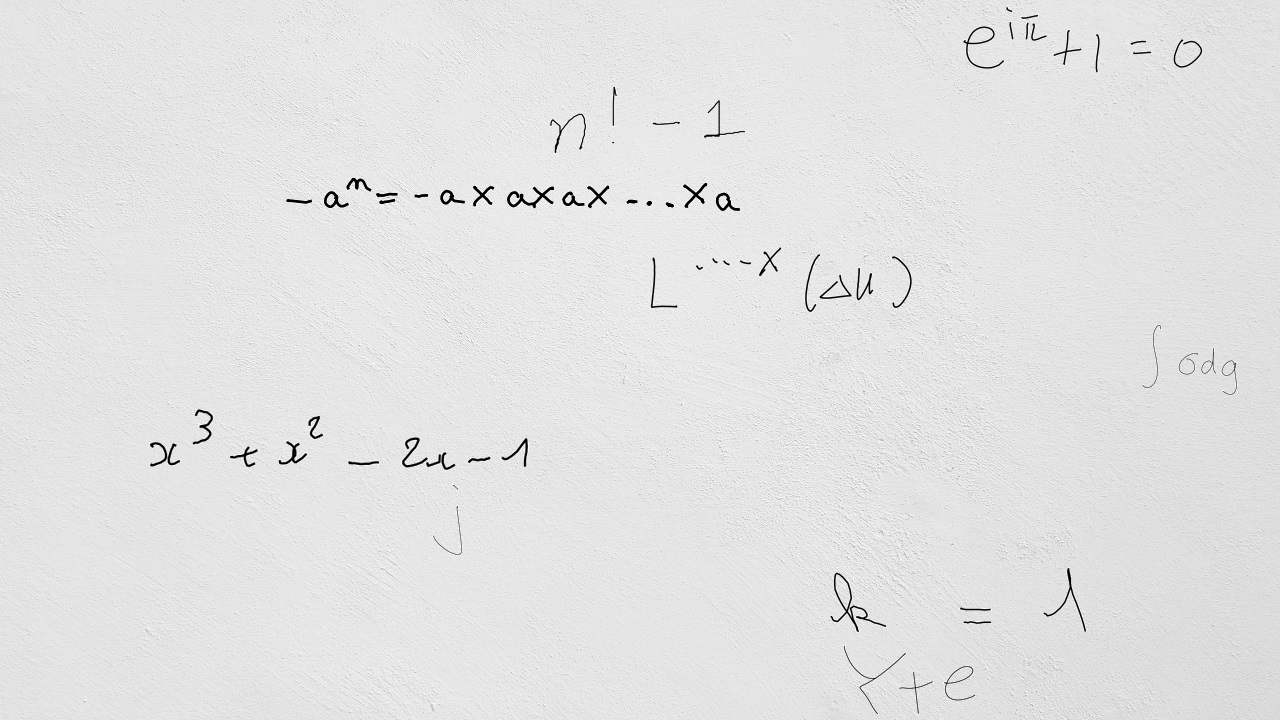 e^{iπ} + 1 = 0
n! - 1
- a^n = - a × a × a × ... × a
L^{.....x} (Δu)
∫ σdg
x^3 + x^2 - 2x - 1
j
k = 1
Y + e